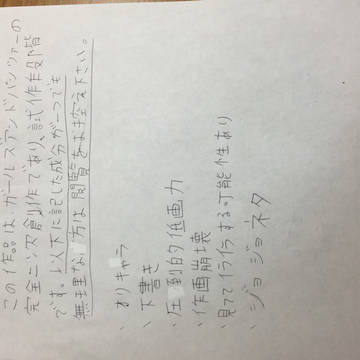 この作品は、ガールズアンドパンツァーの
完全二次創作であり、試作段階
です。以下に記した成分が一つでも
無理な方は閲覧をお控え下さい。
、オリキャラ
、下書き
、圧倒的低画力
、作画崩壊
、見ててイライラする可能性あり
、ジョジョネタ